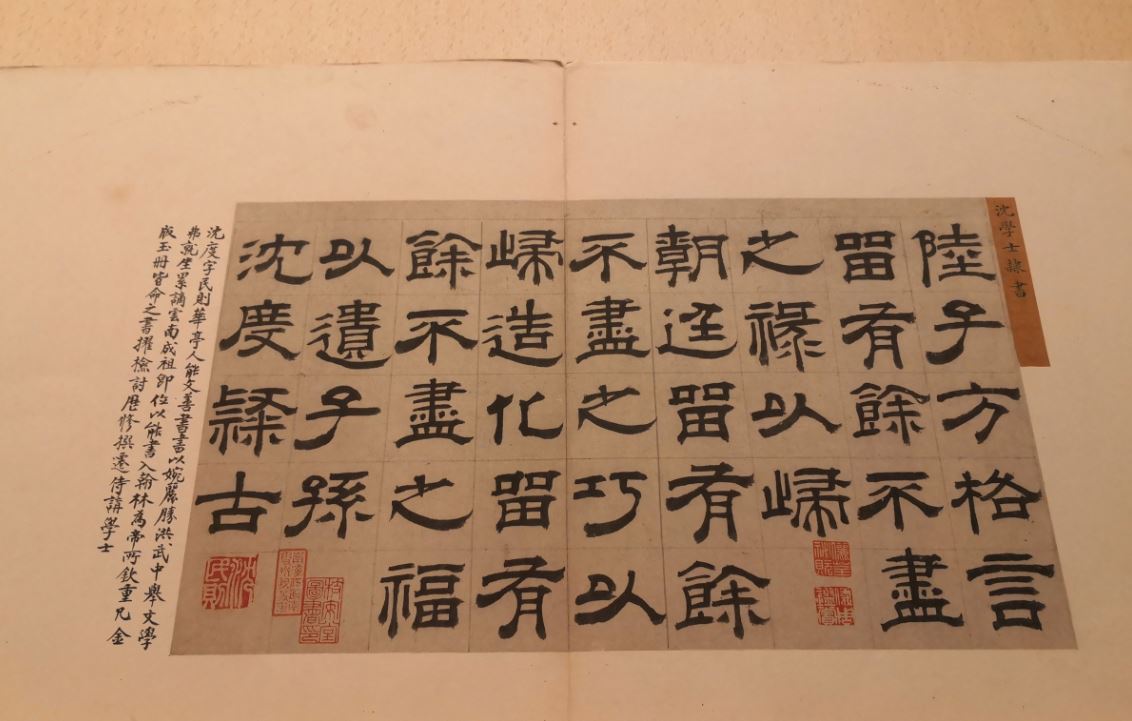 沈學士隸書
陸子方格言
畱有餘不盡
之祿以歸
朝廷畱有餘
不盡之巧以
歸造化畱有
餘不盡之福
以遺子孫
沈度隸古
沈民則
沈度字民則華亭人能文善書書以婉麗勝洪武中舉文學
弗就坐累謫雲南成祖卽位以能書入翰林為帝所欽重凡金
版玉冊皆命之書擢檢討歷修撰遷侍講學士